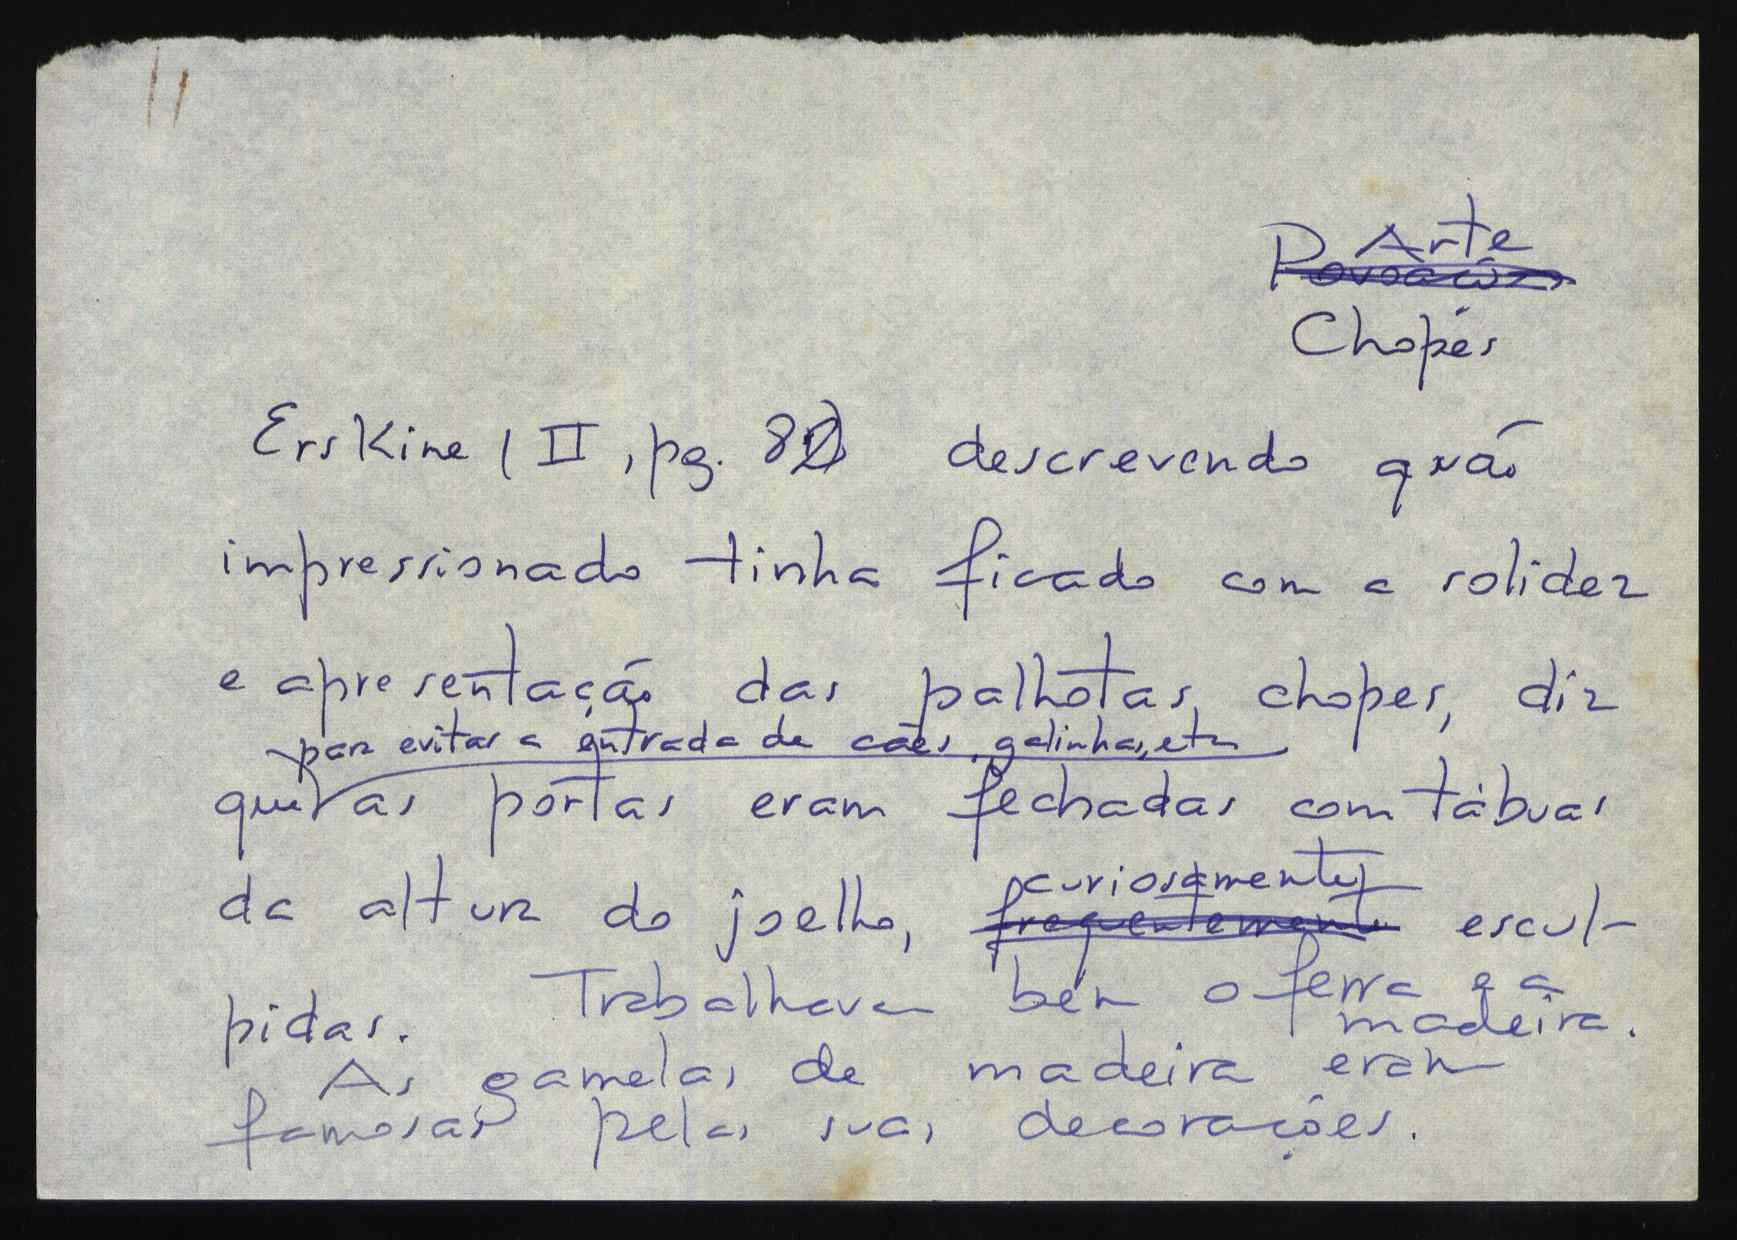 11
Arte
Povoações
Chopes
Erskine (II, pg. 82) descrevendo quão
impressionado tinha ficado com a solidez
e apresentação das palhotas chopes, diz
para evitar a entrada de cães, galinhas, etc
que as portas eram fechadas com tábuas
da altura do joelho, curiosamente
frequentemente escul-
pidas. Trabalhavam bem o ferro e a
madeira.
As gamelas de madeira eram
famosas pelas suas decorações.